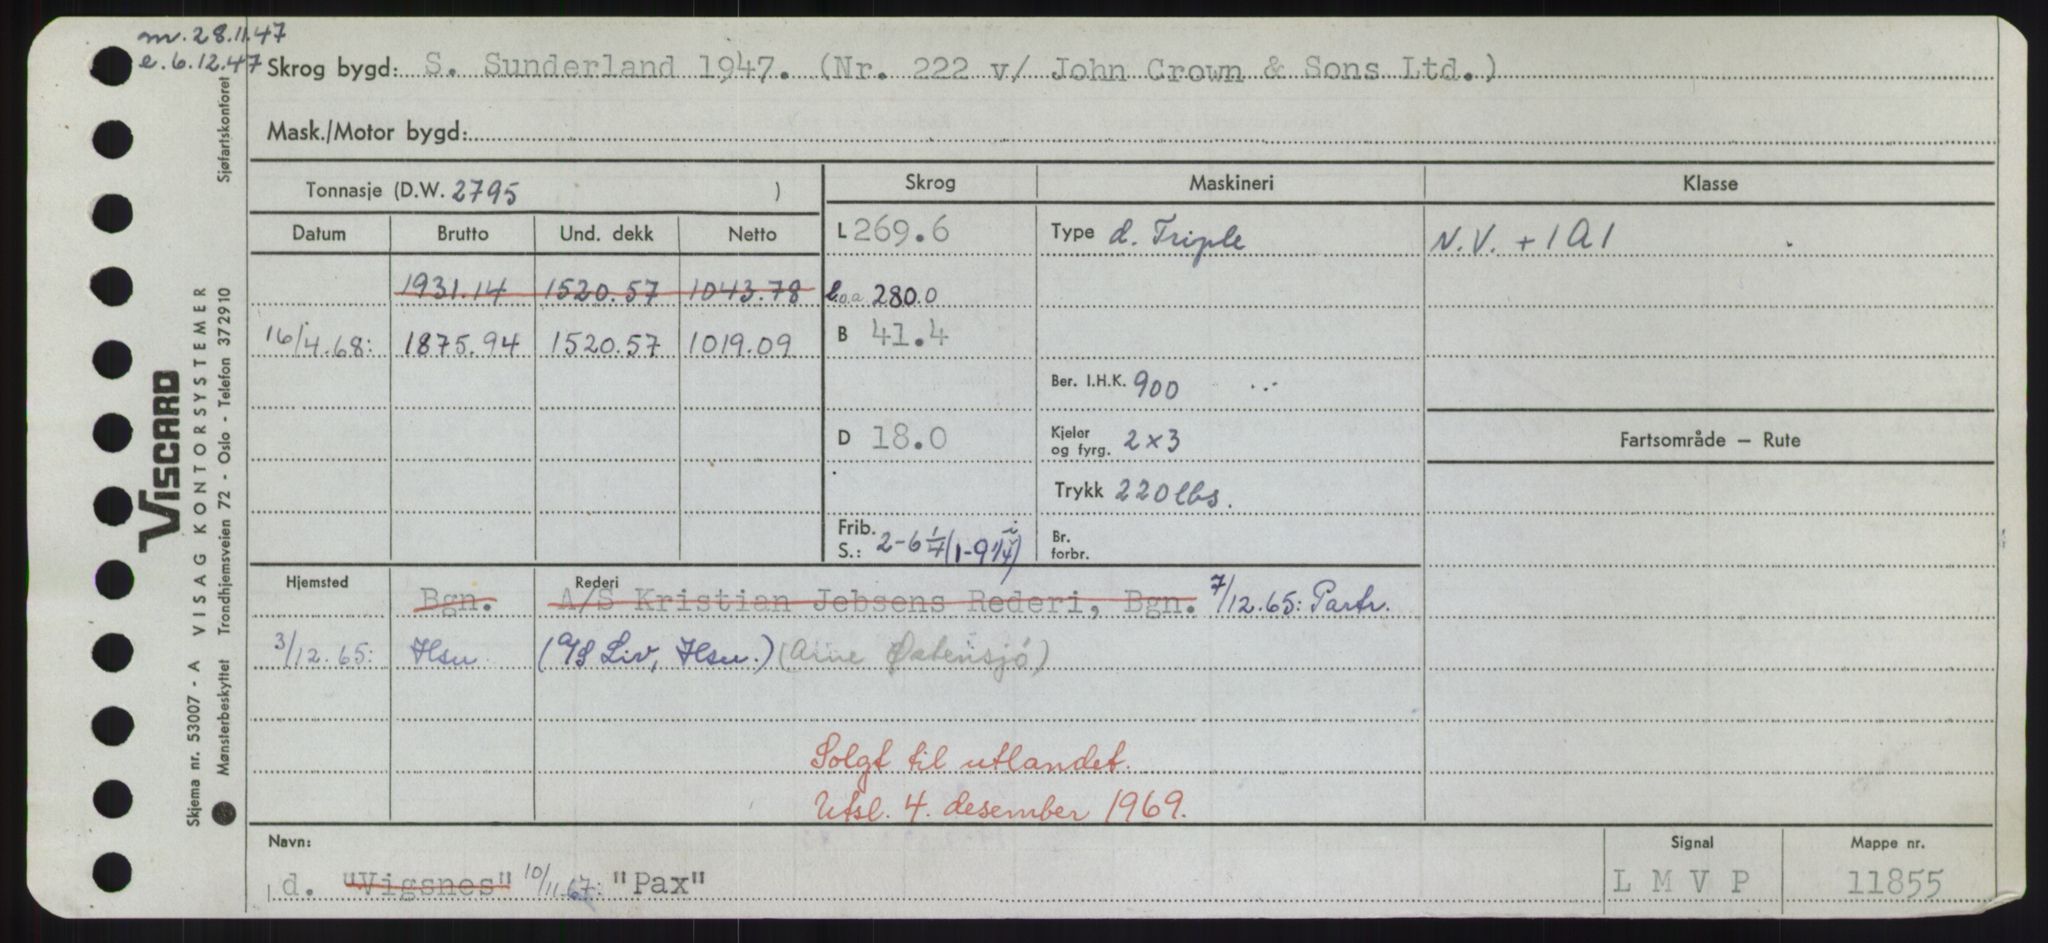 m. 28.11.47
e. 6.12.47
Skrog bygd: S. Sunderland 1947. (Nr. 222 v/ John Crown & Sons Ltd.)
Mask./Motor bygd:
Tonnasje (D.W. 2795 )
Skrog Maskineri Klasse
Datum Brutto Und. dekk Netto
L 269.6 Type d. Triple N.V. + 1A1
1931.14 1520.57 1043.78 L.o.a 280.0
16/4.68: 1875.94 1520.57 1019.09 B 41.4
Ber. I.H.K. 900
D 18.0 Kjeler og fyrg. 2x3 Fartsområde — Rute
Trykk 220 lbs.
Frib. S.: 2-6 1/4 (1-9 1/4) Br. forbr.
Hjemsted Rederi
Bgn. A/S Kristian Jebsens Rederi, Bgn. 7/12.65: Partr.
3/12.65: Hsu. (A/S Liv, Hsu.) (Arne Østensjö)
Solgt til utlandet.
Utsl. 4. desember 1969.
Navn: Signal Mappe nr.
d. "Vigsnes" 10/11.67: "Pax" LMVP 11855
VISCARD
Skjema nr. 53007 - A VISAG KONTORSYSTEMER
Mønsterbeskyttet Trondhjemsveien 72 - Oslo - Telefon 372910
Sjøfartskontoret